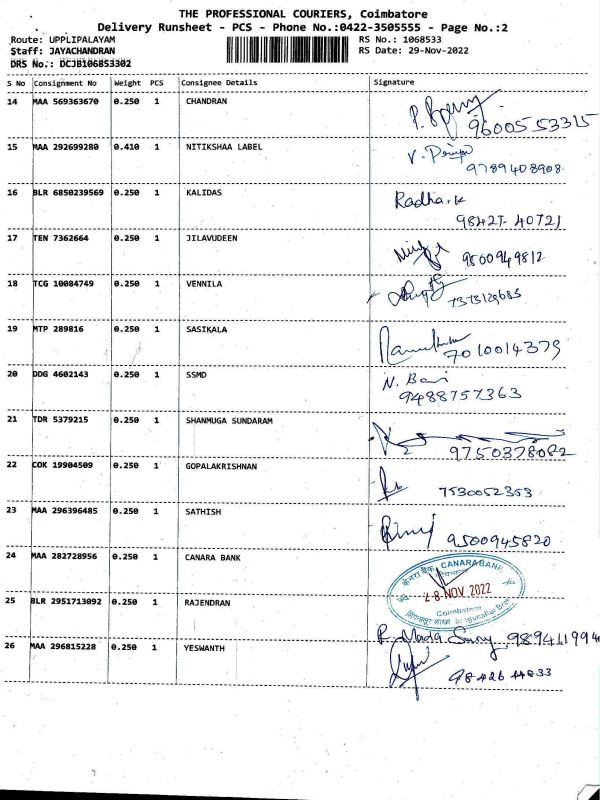 THE PROFESSIONAL COURIERS, Coimbatore
Delivery Runsheet - PCS - Phone No.:0422-3505555 - Page No.:2
Route: UPPLIPALAYAM RS No.: 1068533
Staff: JAYACHANDRAN RS Date: 29-Nov-2022
DRS No.: DCJB106853302
S No Consignment No Weight PCS Consignee Details Signature
14 MAA 569363670 0.250 1 CHANDRAN
9600553315
15 MAA 292699280 0.410 1 NITIKSHAA LABEL
9789408908
16 BLR 6850239569 0.250 1 KALIDAS Radha.k
98427-40721
17 TEN 7362664 0.250 1 JILAVUDEEN
9500949812
18 TCG 10084749 0.250 1 VENNILA
7373129683
19 MTP 289816 0.250 1 SASIKALA
7010014379
20 DDG 4602143 0.250 1 SSMD
9488757363
21 TDR 5379215 0.250 1 SHANMUGA SUNDARAM
9750378082
22 COK 19904509 0.250 1 GOPALAKRISHNAN
7530052353
23 MAA 296396485 0.250 1 SATHISH
9500945820
24 MAA 282728956 0.250 1 CANARA BANK
केनरा बैंक CANARA BANK
28 NOV 2022
Coimbatore
25 BLR 2951713092 0.250 1 RAJENDRAN
26 MAA 296815228 0.250 1 YESWANTH
9842644833